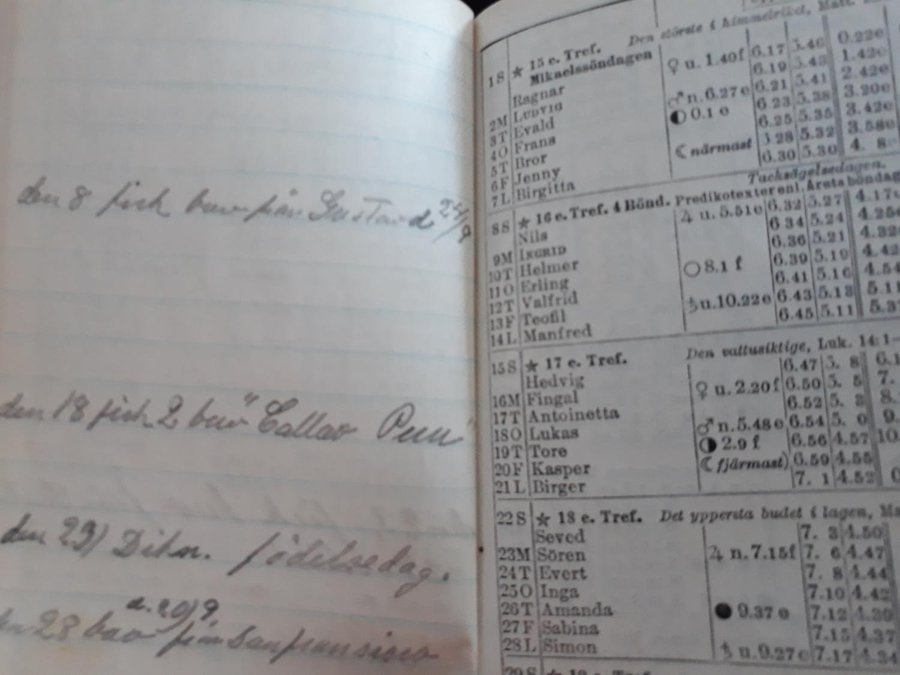 den 8 fick brev från Gustav d 25/9
den 18 fick 2 brev "Callao Peru"
den 23/ Dikn. födelsedag.
d. 20/9
den 28 brev från Sanfransisco
Den störste i himmelriket, Matt.
1 S ★ 15 e. Tref. 6.17 5.46 0.22e
Mikaelssöndagen ♀ u. 1.40f 6.19 5.43 1.42e
Ragnar
2M Ludvig ♂ n. 6.27e 6.21 5.41 2.42e
3T Evald ◐ 0.1 e 6.23 5.38 3.20e
4O Frans 6.25 5.35 3.42e
5T Bror ☾ närmast 6.28 5.32 3.58e
6F Jenny 6.30 5.30 4. 8
7L Birgitta
Tacksägelsedagen.
8S ★ 16 e. Tref. 4 Bönd. Predikotexter enl. årets böndag
Nils ♃ u. 5.51e 6.32 5.27 4.17
9M Ingrid 6 34 5.24 4.25
10T Helmer 6.36 5.21 4.32
11O Erling ○ 8.1 f 6.39 5.19 4.42
12T Valfrid 6.41 5.16 4.54
13F Teofil ♄ u. 10.22e 6.43 5.13 5.11
14L Manfred 6.45 5.11 5.3
15S ★ 17 e. Tref. Den vattusiktige, Luk. 14:1–
Hedvig 6.47 5. 8 6.1
16M Fingal ♀ u. 2.20f 6.50 5. 5 7.
17T Antoinetta 6.52 5. 3 8.
18O Lukas ♂ n. 5.48e 6.54 5. 0 9.
19T Tore ◑ 2.9 f 6.56 4.57 10.
20F Kasper ☾ fjärmast 6.59 4.55
21L Birger 7. 1 4.52
22S ★ 18 e. Tref. Det yppersta budet i lagen, Ma
Seved 7. 3 4.50
23M Sören ♃ n. 7.15f 7. 6 4.47
24T Evert 7. 8 4.44
25O Inga 7.10 4.42
26T Amanda ● 9.37 e 7.12 4.39
27F Sabina 7.15 4.37
28L Simon ♄ u. 9.27e 7.17 4.34
29S